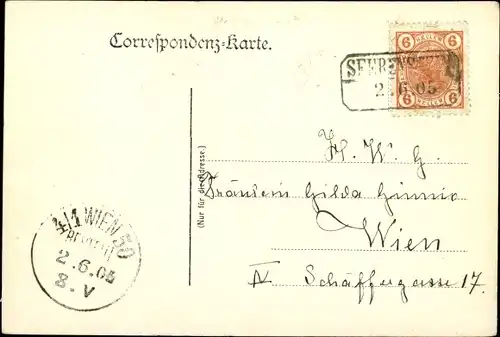 Correspondenz-Karte.
6 HELLER 6
2.6.05
6 HELLER 6
(Nur für die Adresse.)
H. W. G.
Fräulein Gilda
Wien
IV Schäffergasse 17.
4/1 WIEN 50
2.6.05
8-V